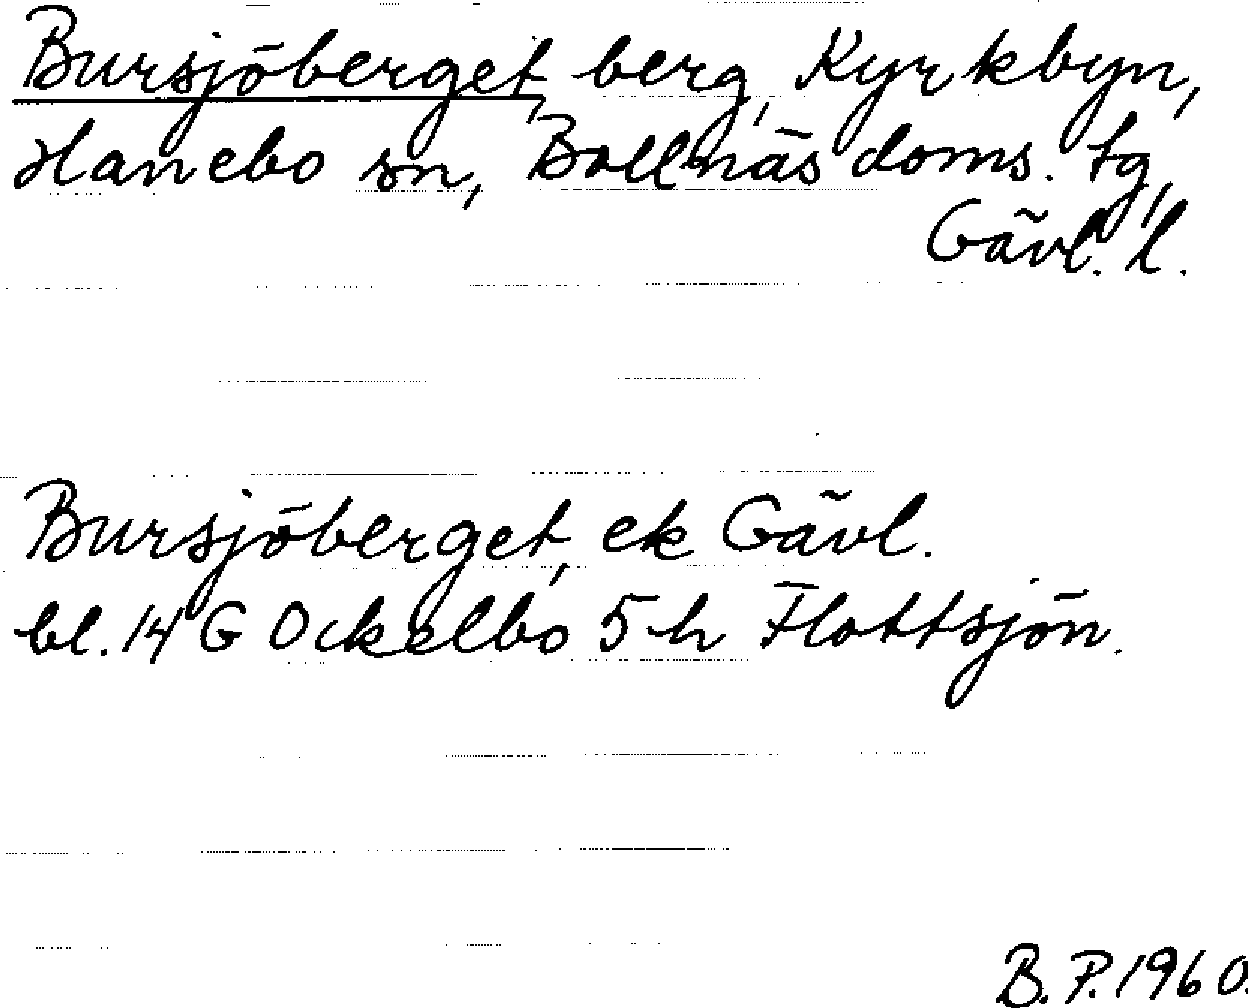 Bursjöberget, berg, Kyrkbyn,
Hanebo sn, Bollnäs doms. tg,
Gävl. l.
Bursjöberget, ek Gävl.
bl. 14 G Ockelbo 5 h Flottsjön.
B. P. 1960.